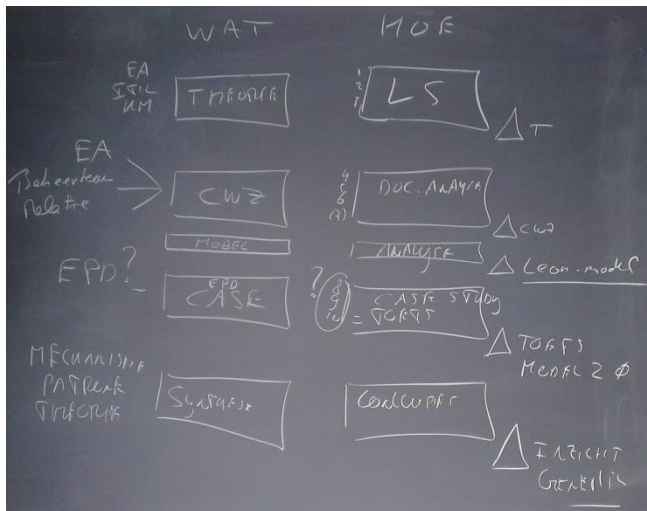 WAT HOE
EA
ITIL
KM
THEORIE
1
2
3
LS
△ T
EA
Beheerteam
Relatie
CWZ
4
5
6
(7)
DOC. ANALYSE
△ CWZ
MODEL
ANALYSE
△ Leon-model
EPD?
EPD
CASE
?
8
9
10
CASE STUDY
= TOETS
△ TOETS
MODEL 2 Ø
MECHANISME
PATRONEN
THEORIE
SYNTHESE
CONCLUDEER
△ INZICHT
GENERIEK